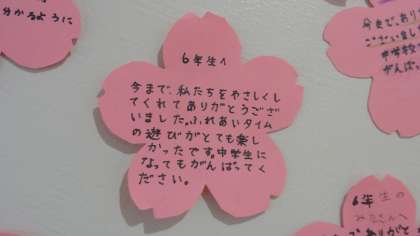 分かるように
6年生へ
今まで、私たちをやさしくし
てくれてありがとうござ
いました。ふれあいタイム
の遊びがとても楽し
かったです。中学生に
なってもがんばってく
ださい。
今まで、あり
ございまし
中学校
がんば
6年生の
みなさんへ